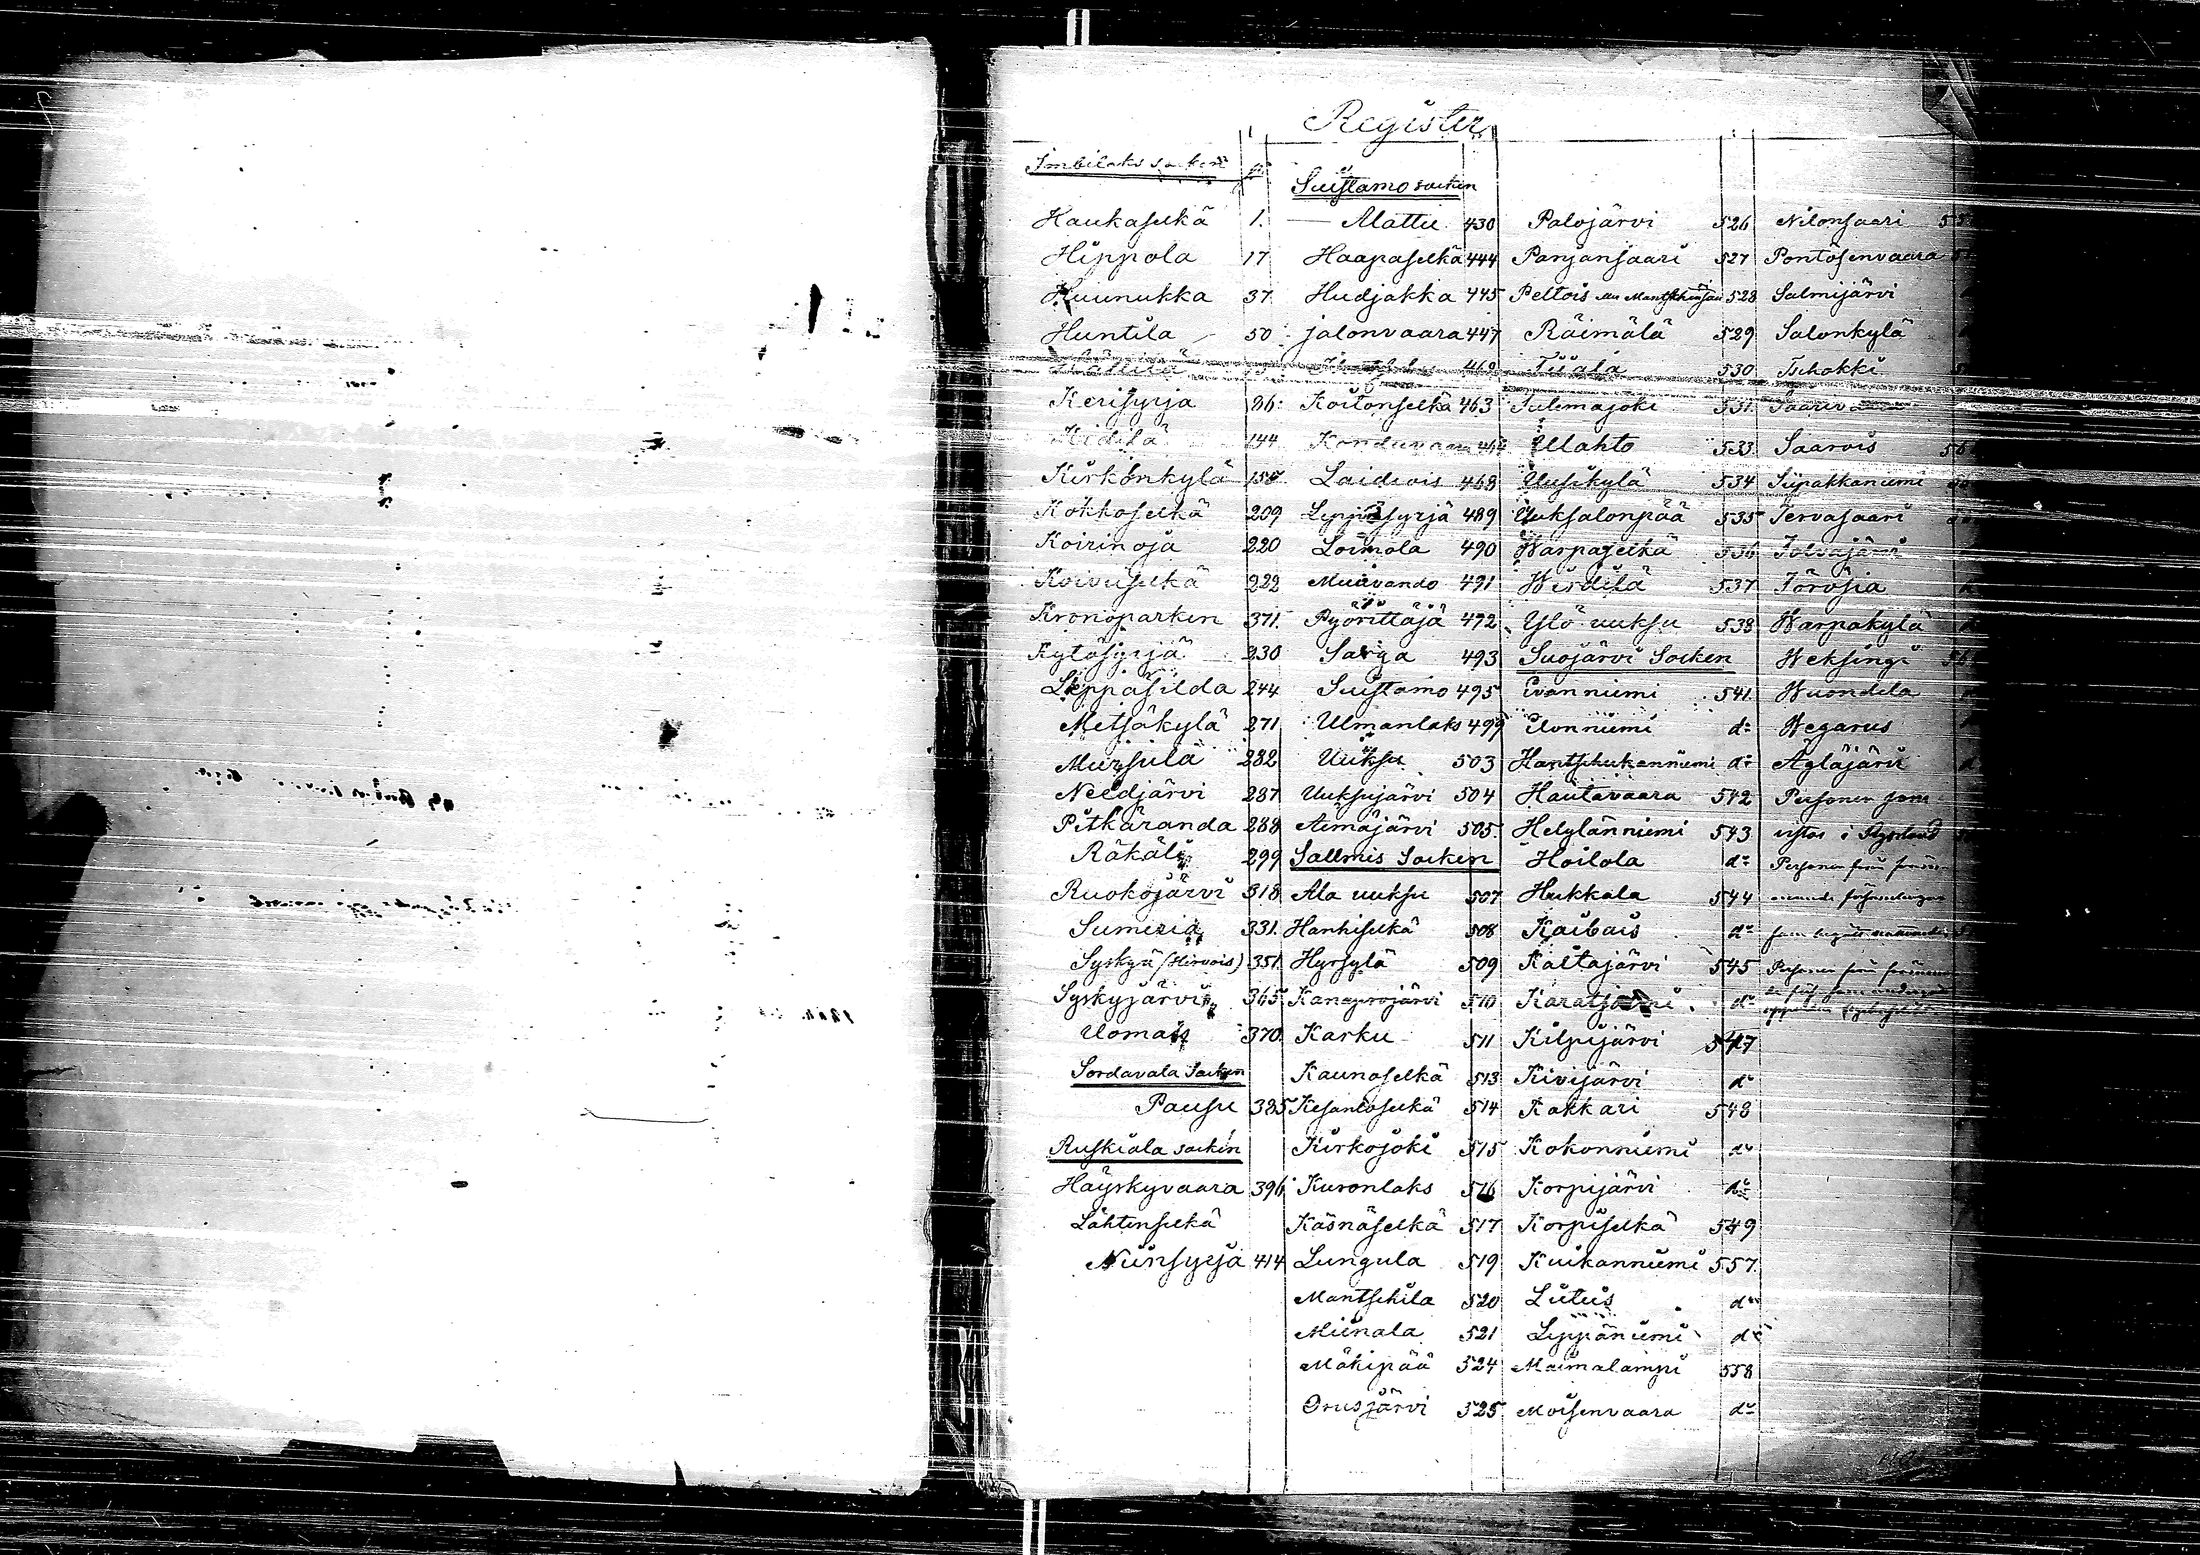 Register
Imbilaks socken
Haukaselkä 1.
Hippola 17
Huunukka 37
Huntila 50
Kerisyrjä 86
Kidilä 144
Kirkonkylä 155
Kokkoselkä 209
Koirinoja 220
Koivuselkä 222
Kronoparken 371.
Kytösyrjä 230
Leppäsilda 244
Metsäkylä 271
Mursula 282
Nietjärvi 287
Pitkäranda 288
Räkäli 299
Ruokojärvi 318
Sumeria 331.
Syskyä (Hirvois) 351
Syskyjärvi 365
Uomais 370
Sordavala Socken
Pausu 385
Ruskiala socken
Häyskyvaara 396
Lähtenselkä
Niinsyrjä 414
Suistamo socken
Alattu 430
Haapaselkä 444
Hudjakka 445
jalonvaara 447
Koitonselkä 463
Konduvaara
Laidiois 468
Leppäsyrjä 489
Loimola 490
Muuvando 491
Pyörittäjä 492
Sarga 493
Suistamo 495
Ulmanlaks 499
Uuksu 503
Uuksujärvi 504
Äimäjärvi 505.
Sallmis Socken
Ala uuksu 507
Hanhiselkä 508
Hyrsylä 509
Kanaprojärvi 510
Karku 511
Kaunoselkä 513
Kesantoselkä 514
Kirkojoki 515
Kuronlaks 516
Käsnäselkä 517
Lungula 519
Mantschila 520
Miinala 521
Mäkipää 524
Orusjärvi 525
Palojärvi 526
Panjansaari 527
Peltois 528
Räimälä 529
Tiiala 530
Tulemajoki 531.
Ullahto 533
Uusikylä 534
Uuksalonpää 535
Warpaselkä 536
Wirdilä 537
Ylö uuksu 538
Suojärvi Socken
Evanniemi 541.
Elonniemi do
Hantschukanniemi do
Hautavaara 542
Helylänniemi 543
Hoilola do
Hukkala 544
Kaibais do
Kaltajärvi 545
Karatjärvi do
Kilpijärvi 547
Kivijärvi do
Kokkari 548
Kokonniemi do
Korpijärvi do
Korpiselkä 549
Kuikanniemi 557.
Liitus do
Leppäniemi do
Maimalampi 558
Moisenvaara do
Nilonsaari
Pontösenvaara
Salmijärvi
Salonkylä
Tschokki
Saarois
Siipakkaniemi
Tervasaari
Tolvajärvi
Törösia
Warpakylä
Weksingi
Wuondela
Wegarus
Ägläjärvi
Personer som
vistas i Ryssland